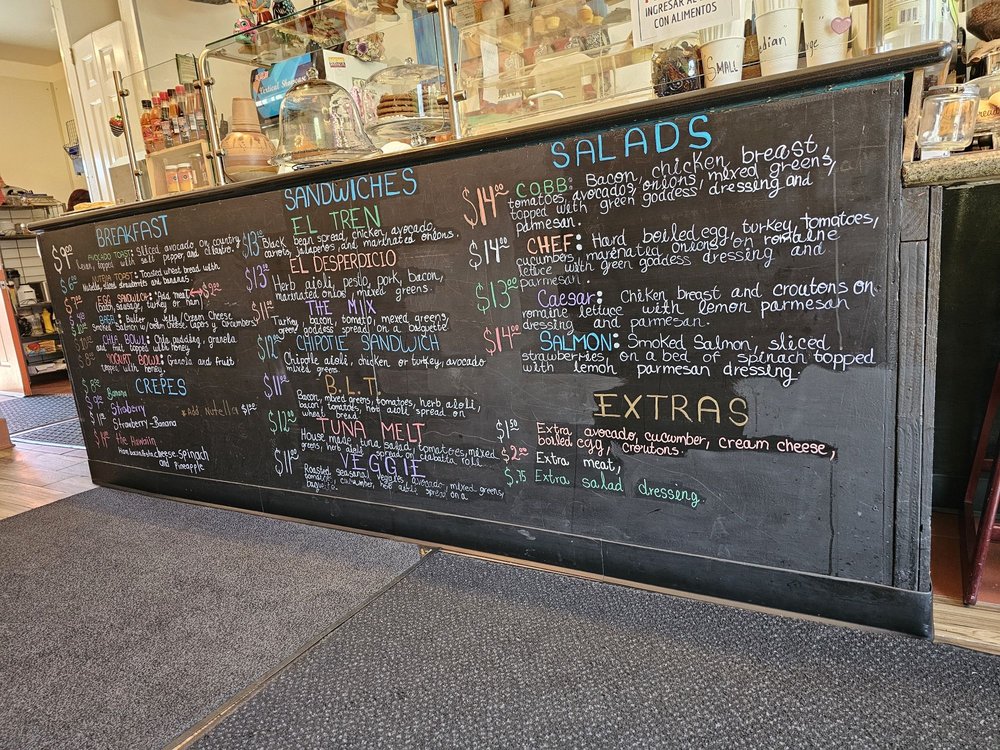 INGRESAR AL
CON ALIMENTOS
SMALL
BREAKFAST
$9.00 AVOCADO TOAST: Sliced avocado on country
topped with salt pepper, and cilantro.
NUTELLA TOAST: Toasted wheat bread with
Nutella, sliced and bananas
EGG SANDWICH: *Add meat $2.00
Bacon, sausage, turkey or ham
BAGEL: Butter Jelly/Cream Cheese
Smoked Salmon w/cream cheese, capers y cucumbers
CHIA BOWL: Chia pudding, granola
and fruit topped with honey
YOGURT BOWL: Granola and fruit
topped with honey.
CREPES
Banana
Strawberry *Add Nutella $1.00
Strawberry-Banana
The Hawaiin
cheese, spinach
and Pineapple
SANDWICHES
EL TREN
$13.00 Black bean spread, chicken, avocado,
carrots, jalapeños and marinated onions.
EL DESPERDICIO
$13.00 Herb aioli, pesto, pork, bacon,
marinated onions, mixed greens.
THE MIX
$11.00 Turkey, bacon, tomato, mixed greens,
green goddess spread on a baguette
CHIPOTLE SANDWICH
$12.00 Chipotle aioli, chicken or turkey, avocado
mixed greens.
B.L.T.
$11.00 Bacon, mixed greens, tomatoes, herb aioli,
wheat bread.
TUNA MELT
$12.00 House made, tuna salad, tomatoes, mixed
greens, herb aioli spread on a ciabatta roll
VEGGIE
$11.00 Roasted seasonal vegates, avocado, mixed greens,
cucumber, herb aioli, spread on a
baguette
SALADS
$14.00 COBB: Bacon, chicken breast,
tomatoes, avocados, onions mixed greens,
topped with green goddess dressing and
parmesan.
$14.00 CHEF: Hard boiled egg, turkey, tomatoes,
cucumbers, marenated onions on romaine
lettuce with green goddess dressing and
parmesan.
$13.00 Caesar: Chiken breast and croutons on
romaine lettuce with lemon parmesan
dressing and parmesan.
$14.00 SALMON: Smoked Salmon, sliced
strawberries, on a bed of spinach topped
with lemon parmesan dressing.
EXTRAS
$1.50 Extra avocado, cucumber, cream cheese,
boiled egg, croutons.
$2.00 Extra meat,
$.75 Extra salad dressing.